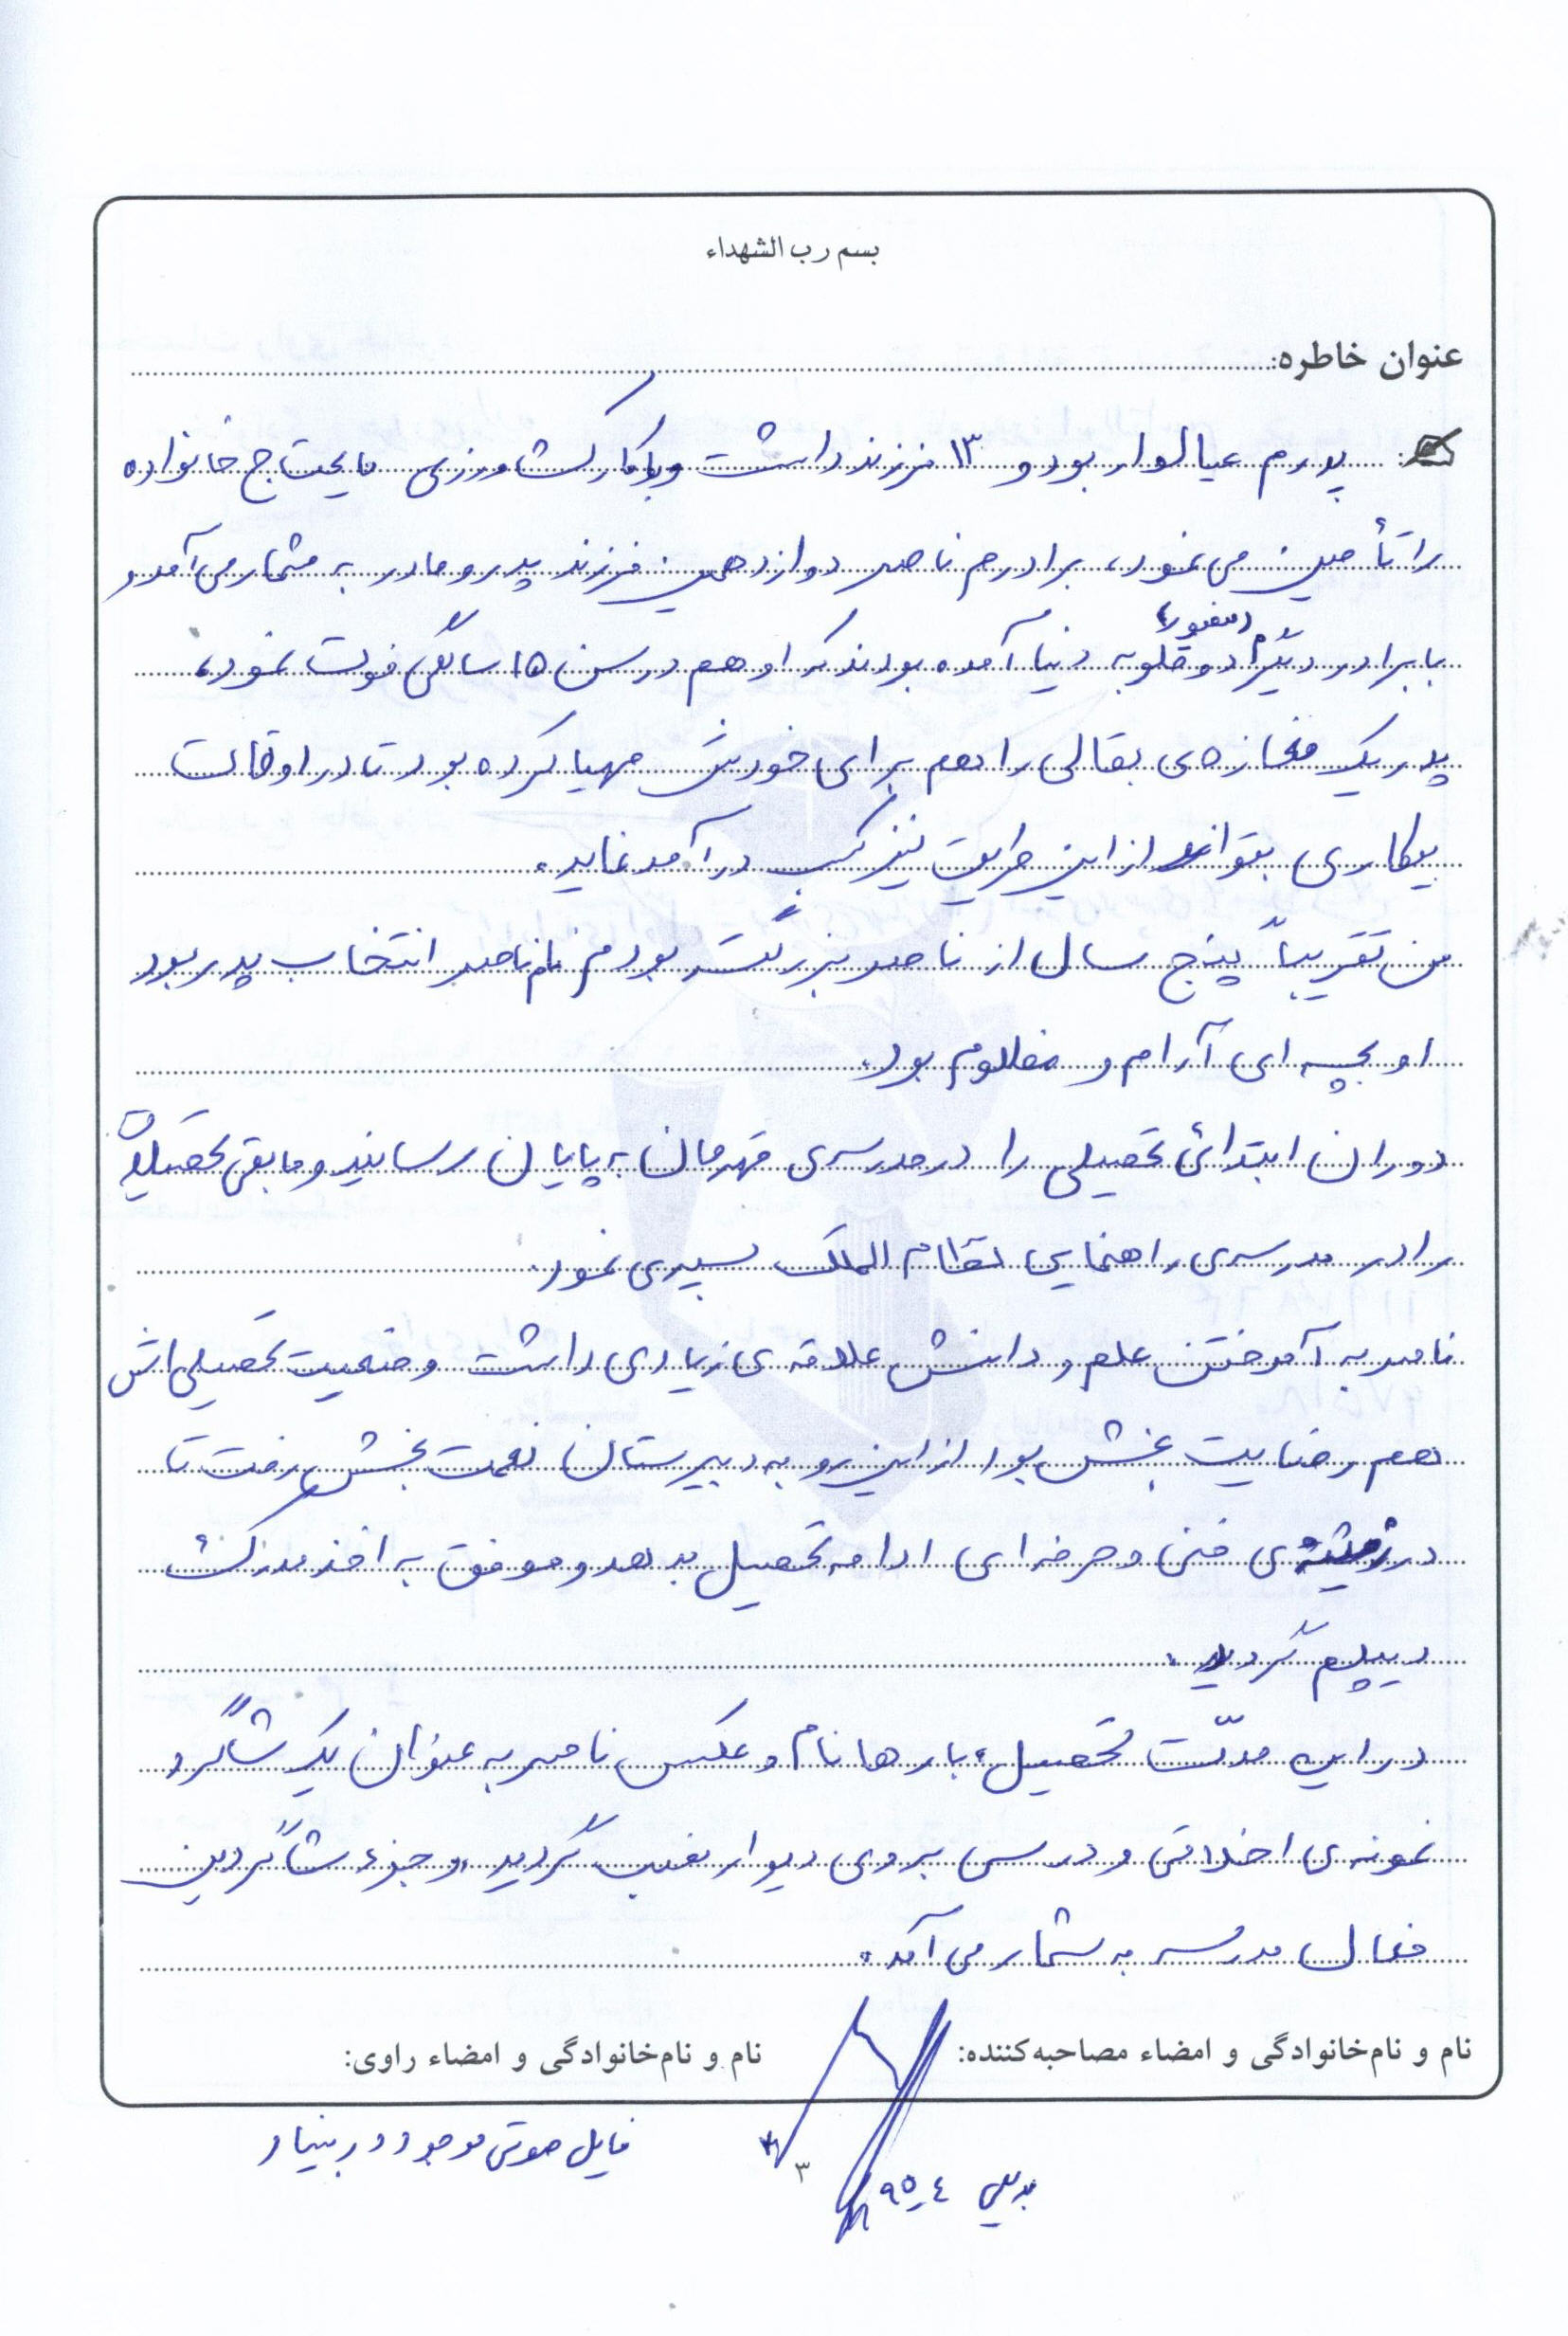 بسم رب الشهداء
عنوان خاطره:
پدرم عیالوار بود و ۱۳ فرزند داشت و با کار کشاورزی مایحتاج خانواده
را تأمین می نمود، برادرم ناصر دوازدهمین فرزند پدر و مادر به شمار می آمد و
(منصور)
با برادر دیگرم دوقلو به دنیا آمده بودند که او هم در سن ۱۵ سالگی فوت نمود،
پدر یک مغازه ی بقالی را هم برای خودش مهیا کرده بود تا در اوقات
بیکاری بتواند از این طریق نیز کسب درآمد نماید.
من تقریباً پنج سال از ناصر بزرگتر بودم نام ناصر انتخاب پدر بود
او بچه ای آرام و مظلوم بود.
دوران ابتدائی تحصیلی را در مدرسه ی قهرمان به پایان رسانید و مابقی تحصیلات
را در مدرسه ی راهنمایی نظام الملک سپری نمود.
ناصر به آموختن علم و دانش علاقه ی زیادی داشت وضعیت تحصیلی اش
هم رضایت بخش بود از این رو به دبیرستان نعمت بخش رفت تا
در رشته ی فنی و حرفه ای ادامه تحصیل بدهد و موفق به اخذ مدرک
دیپلم گردید.
در این مدّت تحصیل، بارها نام و عکس ناصر به عنوان یک شاگرد
نمونه ی اخلاقی و درسی بر روی دیوار نصب گردید، و جزء شاگردین
فعال مدرسه به شمار می آمد.
نام و نام‌خانوادگی و امضاء مصاحبه‌کننده:
نام و نام‌خانوادگی و امضاء راوی:
فایل صوتی موجود در بنیاد
۳
۹۵٫۴